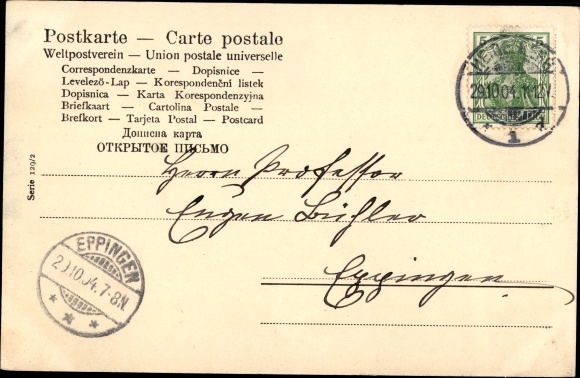 Postkarte — Carte postale
Weltpostverein — Union postale universelle
Correspondenzkarte — Dopisnice —
Levelező-Lap — Korespondenční listek
Dopisnica — Karta Korespondenzyjna
Briefkaart — Cartolina Postale —
Brefkort — Tarjeta Postal — Postcard
Дописна карта
ОТКРЫТОЕ ПИСЬМО
Serie 120/2
5
5
29.10.04. 11-12V.
DEUTSCHES REICH
1
Herrn Professor
Eugen Bühler
Eppingen
EPPINGEN
29.10.04. 7-8N.